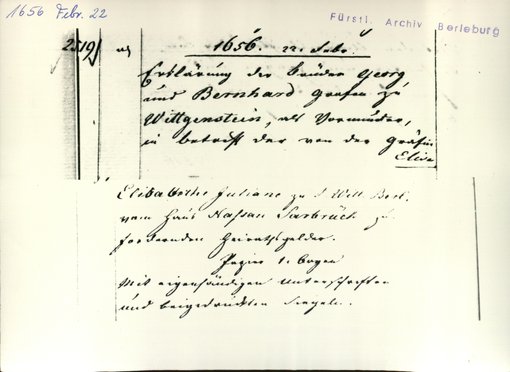 1656 Febr. 22
Fürstl. Archiv Berleburg
1656. 22. Febr.
Erklärung der brüder Georg
und Bernhard Grafen zu
Wittgenstein, als Vormünder,
in betreff der von der Gräfin
Elisa
Elisabethe Juliane zu S. Witt. Berl.
vom Haus Nassau Sarbrück zu
fordernden Heirathsgelder.
Papier 1. bogen
Mit eigenhändigen Unterschriften
und beigedrückten Siegeln.